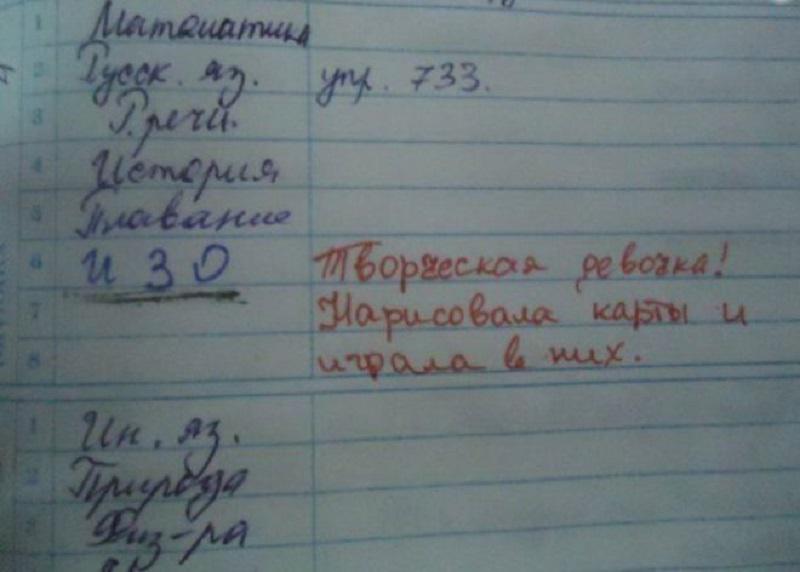 1 Математика
2 Русск. яз. упр. 733.
3 Р. речи.
4 История
5 Плавание
6 ИЗО Творческая девочка!
7 Нарисовала карты и
8 играла в них.
1 Ин. яз.
2 Природа
3 Физ-ра